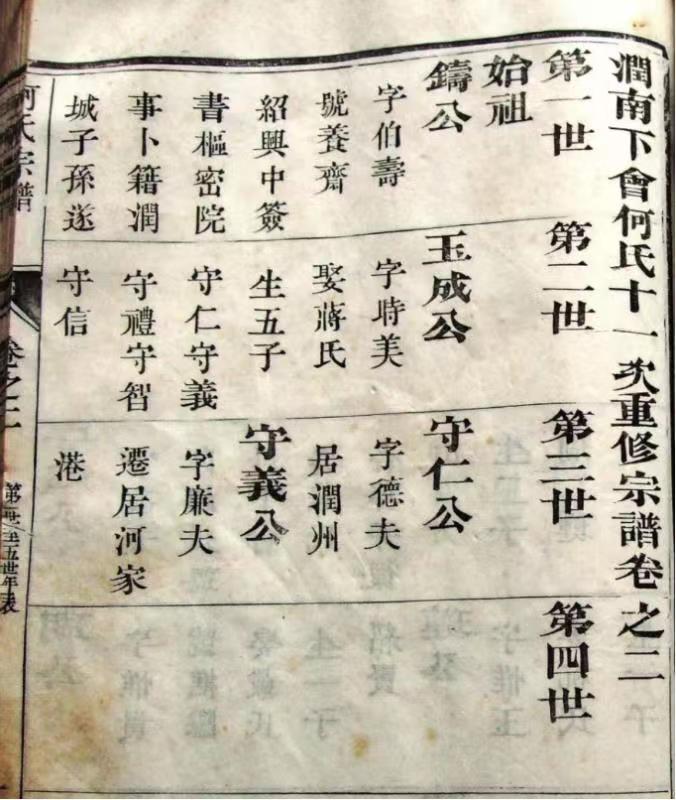 潤南下會何氏十一次重修宗譜卷之二
第一世
始祖
鑄公
字伯壽
號養齋
紹興中簽
書樞密院
事卜籍潤
城子孫遂
第二世
玉成公
字時美
娶蔣氏
生五子
守仁守義
守禮守智
守信
第三世
守仁公
字德夫
居潤州
守義公
字廉夫
遷居河家
港
第四世
何氏宗譜
卷之二
第一世至五世年表